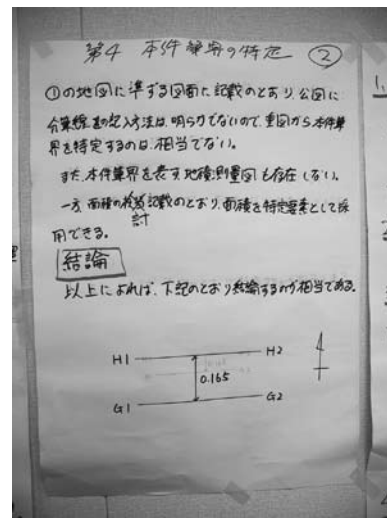 第4 本件筆界の特定 ②
①の地図に準ずる図面に記載のとおり、公図に
分筆線の記入方法は、明らかでないので、重図から本件筆
界を特定するのは、相当でない。
また、本件筆界を表す地積測量図も存在しない。
一方、面積の検討記載のとおり、面積を特定要素として採
用できる。
結論
以上によれば、下記のとおり結論するのが相当である。
H1 H2
0.165
G1 G2